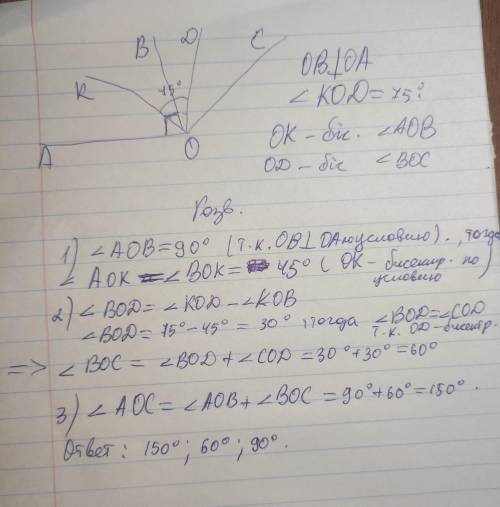 B D C
K 75°
A O
OB⊥OA
∠KOD=75°
OK - біс. ∠AOB
OD - біс ∠BOC
Розв.
1) ∠AOB=90° (т.к. OB⊥OA по условию)., тогда
∠AOK = ∠BOK = 45° (OK - биссектр. по условию)
2) ∠BOD = ∠KOD - ∠KOB
∠BOD = 75° - 45° = 30°, тогда ∠BOD=∠COD
т.к. OD - биссектр.
=> ∠BOC = ∠BOD + ∠COD = 30° + 30° = 60°
3) ∠AOC = ∠AOB + ∠BOC = 90° + 60° = 150°.
Ответ: 150°; 60°; 90°.